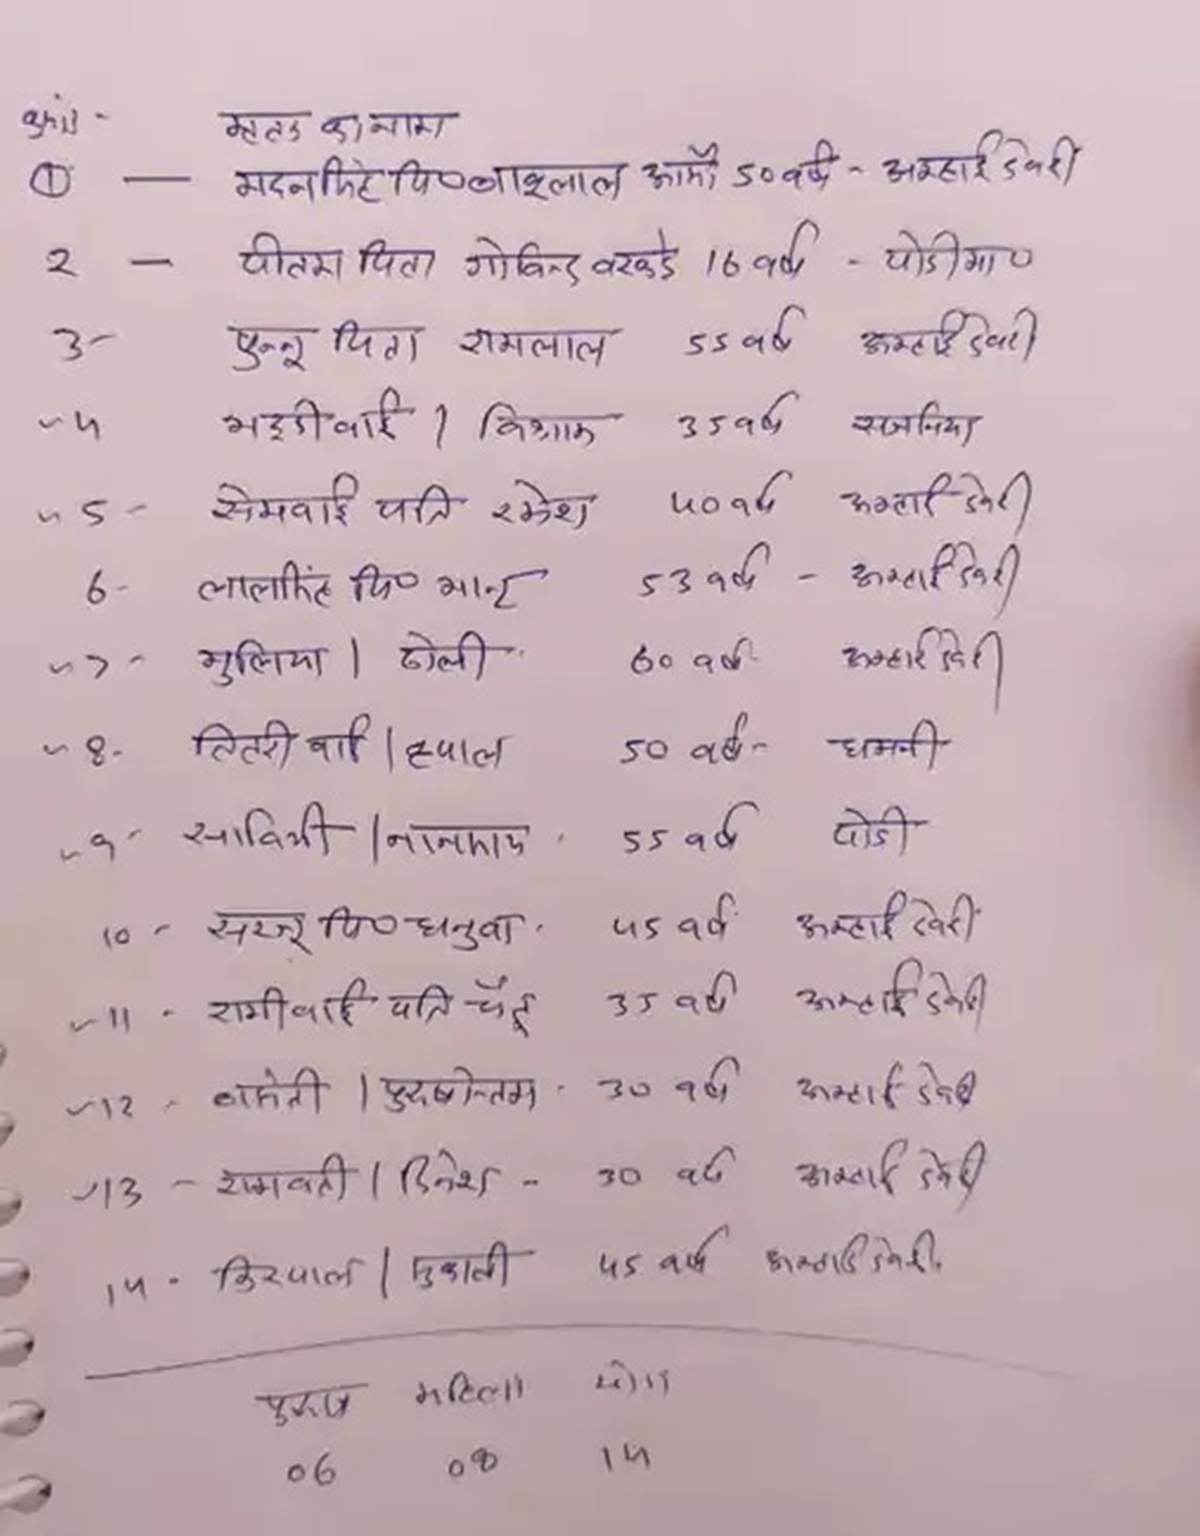 मृतक का नाम
① — मदनसिंह पि० बाबूलाल आर्मो 50 वर्ष - अम्हाई देवरी
2 — पीतम पिता गोविन्द वरकडे 16 वर्ष - पोडी मा०
3- पुन्नू पिता रामलाल 55 वर्ष अम्हाई देवरी
4 भद्दी बाई / विश्राम 35 वर्ष सजनिया
5 - सेमबाई पति रमेश 40 वर्ष अम्हाई देवरी
6- लालसिंह पि० भानू 53 वर्ष - अम्हाई देवरी
7 - मुलिया / ढोली 60 वर्ष अम्हाई देवरी
8 - तितरी बाई / 50 वर्ष - धमनी
9 - सावित्री / नानसाय 55 वर्ष पोडी
10 - सरजू पि० धनुवा 45 वर्ष अम्हाई देवरी
11 - रामीबाई पति चैतू 35 वर्ष अम्हाई देवरी
12 - बसंती / पुरुषोत्तम 30 वर्ष अम्हाई देवरी
13 - रामवती / दिनेश - 30 वर्ष अम्हाई देवरी
14 - किरपाल / सुकाली 45 वर्ष अम्हाई देवरी
पुरुष महिला योग
06 08 14